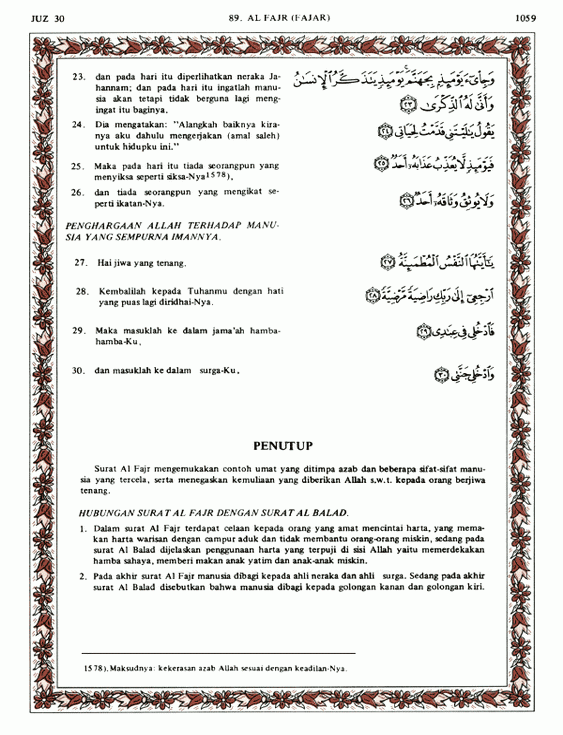 JUZ 30 89. AL FAJR (FAJAR) 1059
23. dan pada hari itu diperlihatkan neraka Ja-
hannam; dan pada hari itu ingatlah manu-
sia akan tetapi tidak berguna lagi meng-
ingat itu baginya.
وَجِاْىٓءَ يَوْمَئِذٍۭ بِجَهَنَّمَ ۚ يَوْمَئِذٍ يَتَذَكَّرُ ٱلْإِنسَٰنُ
وَأَنَّىٰ لَهُ ٱلذِّكْرَىٰ ﴿٢٣﴾
24. Dia mengatakan: "Alangkah baiknya kira-
nya aku dahulu mengerjakan (amal saleh)
untuk hidupku ini."
يَقُولُ يَٰلَيْتَنِى قَدَّمْتُ لِحَيَاتِى ﴿٢٤﴾
25. Maka pada hari itu tiada seorangpun yang
menyiksa seperti siksa-Nya1578),
فَيَوْمَئِذٍ لَّا يُعَذِّبُ عَذَابَهُۥٓ أَحَدٌ ﴿٢٥﴾
26. dan tiada seorangpun yang mengikat se-
perti ikatan-Nya.
وَلَا يُوثِقُ وَثَاقَهُۥٓ أَحَدٌ ﴿٢٦﴾
PENGHARGAAN ALLAH TERHADAP MANU-
SIA YANG SEMPURNA IMANNYA.
27. Hai jiwa yang tenang.
يَٰٓأَيَّتُهَا ٱلنَّفْسُ ٱلْمُطْمَئِنَّةُ ﴿٢٧﴾
28. Kembalilah kepada Tuhanmu dengan hati
yang puas lagi diridhai-Nya.
ٱرْجِعِىٓ إِلَىٰ رَبِّكِ رَاضِيَةً مَّرْضِيَّةً ﴿٢٨﴾
29. Maka masuklah ke dalam jama'ah hamba-
hamba-Ku,
فَٱدْخُلِى فِى عِبَٰدِى ﴿٢٩﴾
30. dan masuklah ke dalam surga-Ku.
وَٱدْخُلِى جَنَّتِى ﴿٣٠﴾
PENUTUP
Surat Al Fajr mengemukakan contoh umat yang ditimpa azab dan beberapa sifat-sifat manu-
sia yang tercela, serta menegaskan kemuliaan yang diberikan Allah s.w.t. kepada orang berjiwa
tenang.
HUBUNGAN SURAT AL FAJR DENGAN SURAT AL BALAD.
1. Dalam surat Al Fajr terdapat celaan kepada orang yang amat mencintai harta, yang mema-
kan harta warisan dengan campur aduk dan tidak membantu orang-orang miskin, sedang pada
surat Al Balad dijelaskan penggunaan harta yang terpuji di sisi Allah yaitu memerdekakan
hamba sahaya, memberi makan anak yatim dan anak-anak miskin.
2. Pada akhir surat Al Fajr manusia dibagi kepada ahli neraka dan ahli surga. Sedang pada akhir
surat Al Balad disebutkan bahwa manusia dibagi kepada golongan kanan dan golongan kiri.
1578). Maksudnya: kekerasan azab Allah sesuai dengan keadilan-Nya.